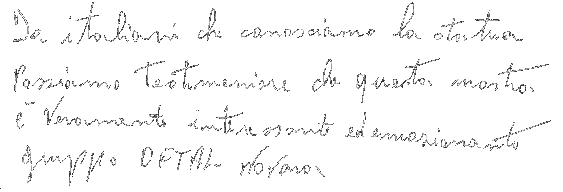 Da italiani che conosciamo la statua
Possiamo testimoniare che questa mostra
è veramente interessante ed emozionante
gruppo DETAL Novara